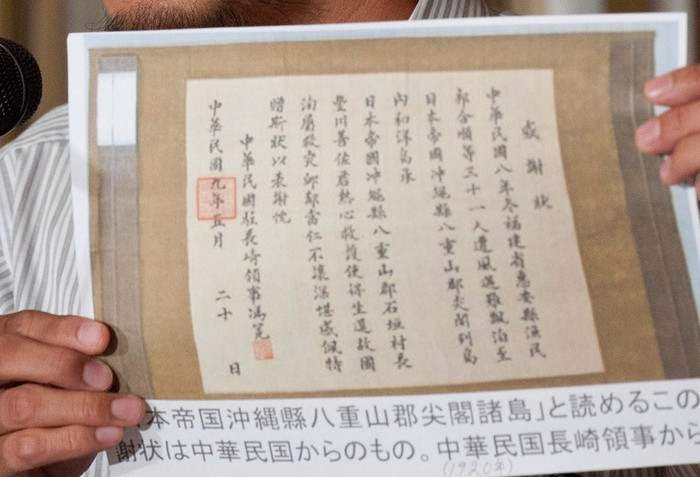 感謝狀
中華民國八年冬福建省惠安縣漁民
郭合順等三十一人遭風遇難飄泊至
日本帝國沖繩縣八重山郡尖閣列島
內和洋島承
日本帝國沖繩縣八重山郡石垣村長
豐川善佐君熱心救護使得生還故國
洵屬救災卹鄰當仁不讓深堪感佩特
贈斯狀以表謝忱
中華民國駐長崎領事馮冕
中華民國九年五月二十日
本帝国沖縄縣八重山郡尖閣諸島」と読めるこの
謝状は中華民国からのもの。中華民国長崎領事から
(1920年)